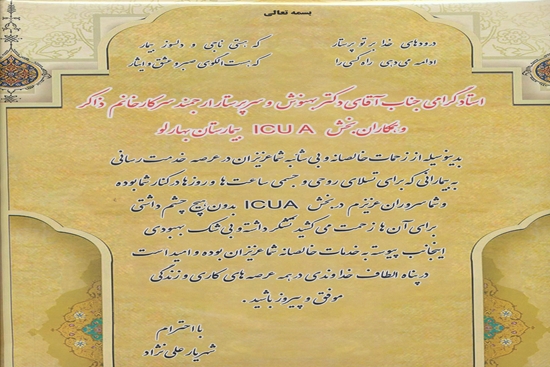 بسمه تعالی
درودهای خدا بر تو پرستار
که هستی ناجی و دلسوز بیمار
ادامه می‌دهی راه کسی را
که هست الگوی صبر و عشق و ایثار
استاد گرامی جناب آقای دکتر بهنوش و سرپرستار ارجمند سرکار خانم ذاکر
و همکاران بخش ICU A بیمارستان بهارلو
بدینوسیله از زحمات خالصانه و بی شائبه شما عزیزان در عرصه خدمت رسانی
به بیمارانی که برای تسلای روحی و جسمی ساعت‌ها و روزها در کنار شما بوده
و شما سروران عزیزم در بخش ICUA بدون هیچ چشم داشتی
برای آن‌ها زحمت می کشید تشکر داشته و بی شک بهبودی
اینجانب پیوسته به خدمات خالصانه شما عزیزان بوده و امید است
در پناه الطاف خداوندی در همه عرصه‌های کاری و زندگی
موفق و پیروز باشید .
با احترام
شهریار علی نژاد